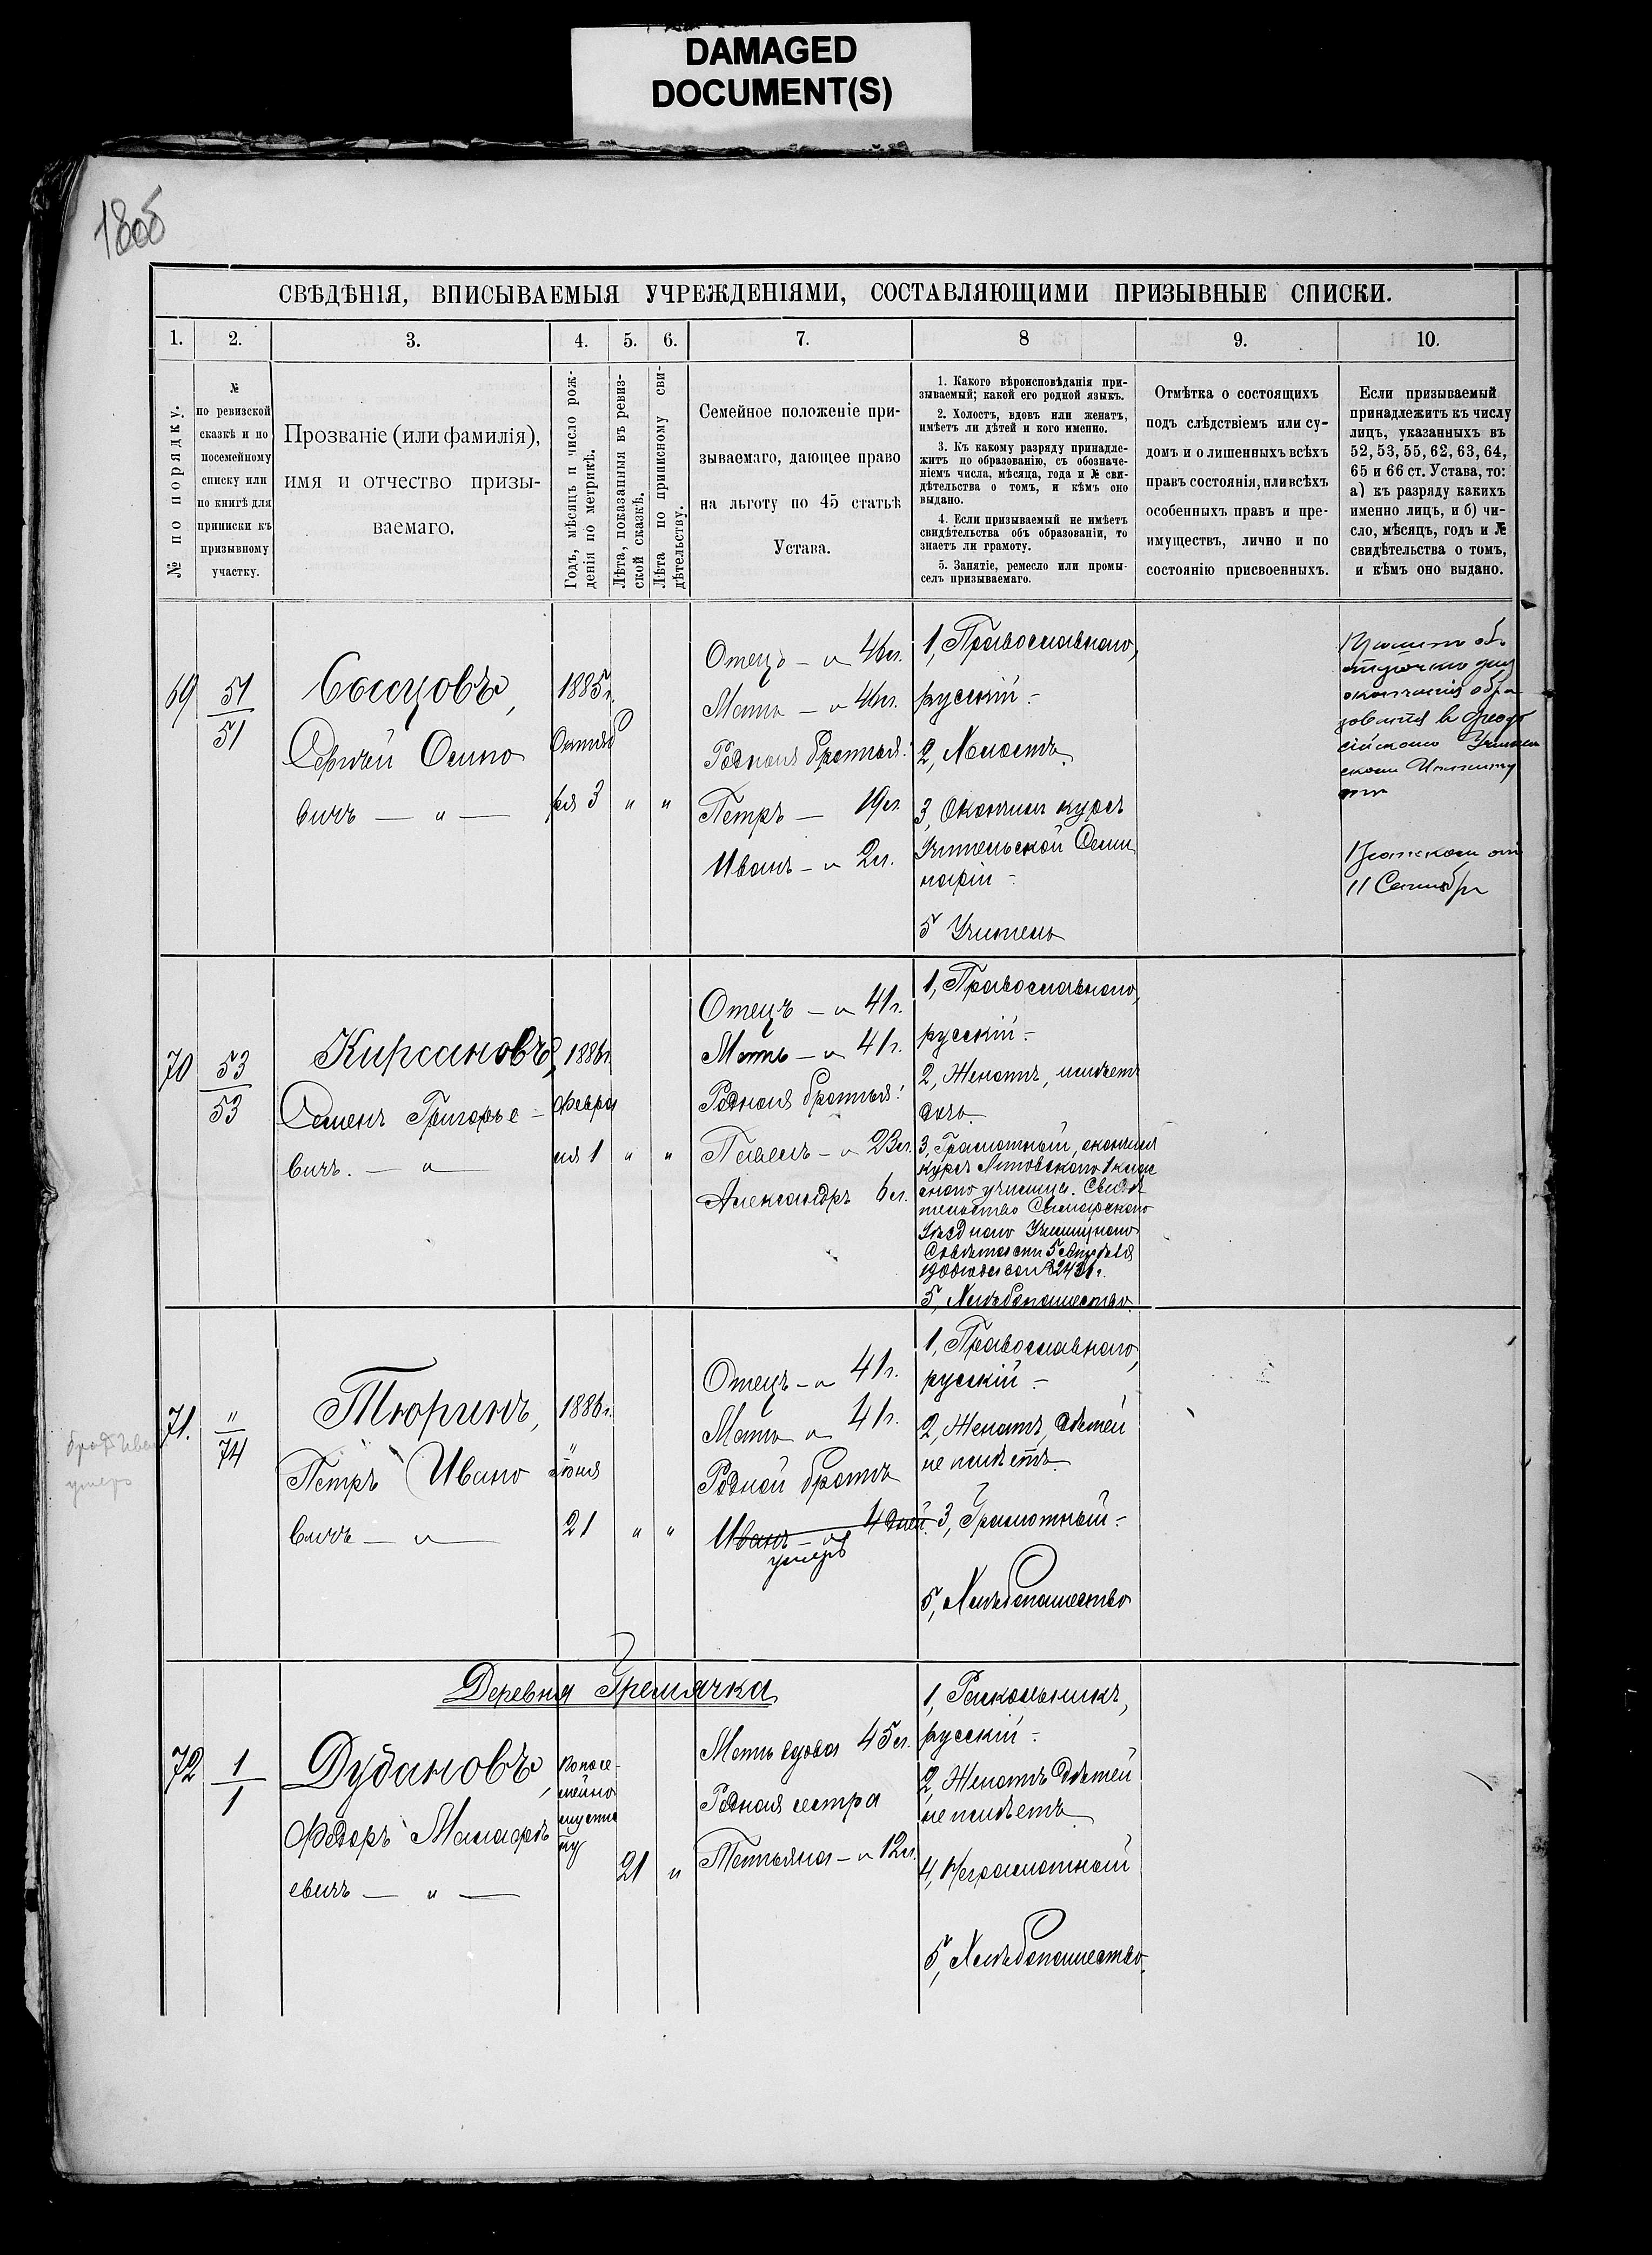 DAMAGED
DOCUMENT(S)
180об
СВѢДѢНІЯ, ВПИСЫВАЕМЫЯ УЧРЕЖДЕНІЯМИ, СОСТАВЛЯЮЩИМИ ПРИЗЫВНЫЕ СПИСКИ.
1. 2. 3. 4. 5. 6. 7. 8 9. 10.
№ по порядку.
№
по ревизской
сказкѣ и по
посемейному
списку или
по книгѣ для
приписки къ
призывному
участку.
Прозваніе (или фамилія),
имя и отчество призы-
ваемаго.
Годъ, мѣсяцъ и число рож-
денія по метрикѣ.
Лѣта, показанныя въ ревиз-
ской сказкѣ.
Лѣта по приписному сви-
дѣтельству.
Семейное положеніе при-
зываемаго, дающее право
на льготу по 45 статьѣ
Устава.
1. Какого вѣроисповѣданія при-
зываемый; какой его родной языкъ.
2. Холостъ, вдовъ или женатъ,
имѣетъ ли дѣтей и кого именно.
3. Къ какому разряду принадле-
житъ по образованію, съ обозначе-
ніемъ числа, мѣсяца, года и № сви-
дѣтельства о томъ, и кѣмъ оно
выдано.
4. Если призываемый не имѣетъ
свидѣтельства объ образованіи, то
знаетъ ли грамоту.
5. Занятіе, ремесло или промы-
селъ призываемаго.
Отмѣтка о состоящихъ
подъ слѣдствіемъ или су-
домъ и о лишенныхъ всѣхъ
правъ состоянія, или всѣхъ
особенныхъ правъ и пре-
имуществъ, лично и по
состоянію присвоенныхъ.
Если призываемый
принадлежитъ къ числу
лицъ, указанныхъ въ
52, 53, 55, 62, 63, 64,
65 и 66 ст. Устава, то:
а) къ разряду какихъ
именно лицъ, и б) чи-
сло, мѣсяцъ, годъ и №
свидѣтельства о томъ,
и кѣмъ оно выдано.
69
51
51
Сергѣй Осипо
вичъ — " —
1885г.
Октяб
ря 3 " "
Отецъ - " 46л.
Мать - " 44л.
Родныя братья:
Петръ — 19л.
Иванъ - " 2л.
1, Православнаго,
русскій -
2, Холостъ
3, Окончилъ курсъ
Учительской Семи
наріи -
5 Учитель
объ
отсрочкѣ для
окончанія обра
зованія въ Ѳеодо
сійскомъ Учитель
скомъ Институ
тѣ
11 Сентября
70
53
53
Кирсановъ,
Семенъ Григорье -
вичъ. - " —
1886г.
Февра
ля 1 " "
Отецъ - " 41г.
Мать - " 41г.
Родныя братья:
Павелъ - " 23л.
Александръ 6л.
1, Православнаго,
русскій -
2, Женатъ, имѣетъ
дочь
3, Грамотный, окончилъ
курсъ 1 клас
снаго училища. Свидѣ
тельство Самарскаго
Уѣзднаго Училищнаго
Совѣта отъ
5, Хлѣбопашество.
71.
"
74
Тюринъ,
Петръ Ивано
вичъ - " —
1886г.
іюня
21 " "
Отецъ - " 41г.
Мать " 41г.
Родной братъ
Иванъ - " 4 дней.
умеръ
1, Православнаго,
русскій -
2, Женатъ, дѣтей
не имѣетъ
3, Грамотный -
5, Хлѣбопашество
умеръ
Деревня Гремячка
72
1
1
Дудановъ,
Ѳедоръ Малафѣ
евичъ — " —
По посе-
мейно
му спи
ску
21 "
Мать вдова 45л.
Родная сестра
Татьяна - " 12л.
1, Раскольникъ,
русскій -
2, Женатъ дѣтей
не имѣетъ
4, Неграмотный
5, Хлѣбопашество.